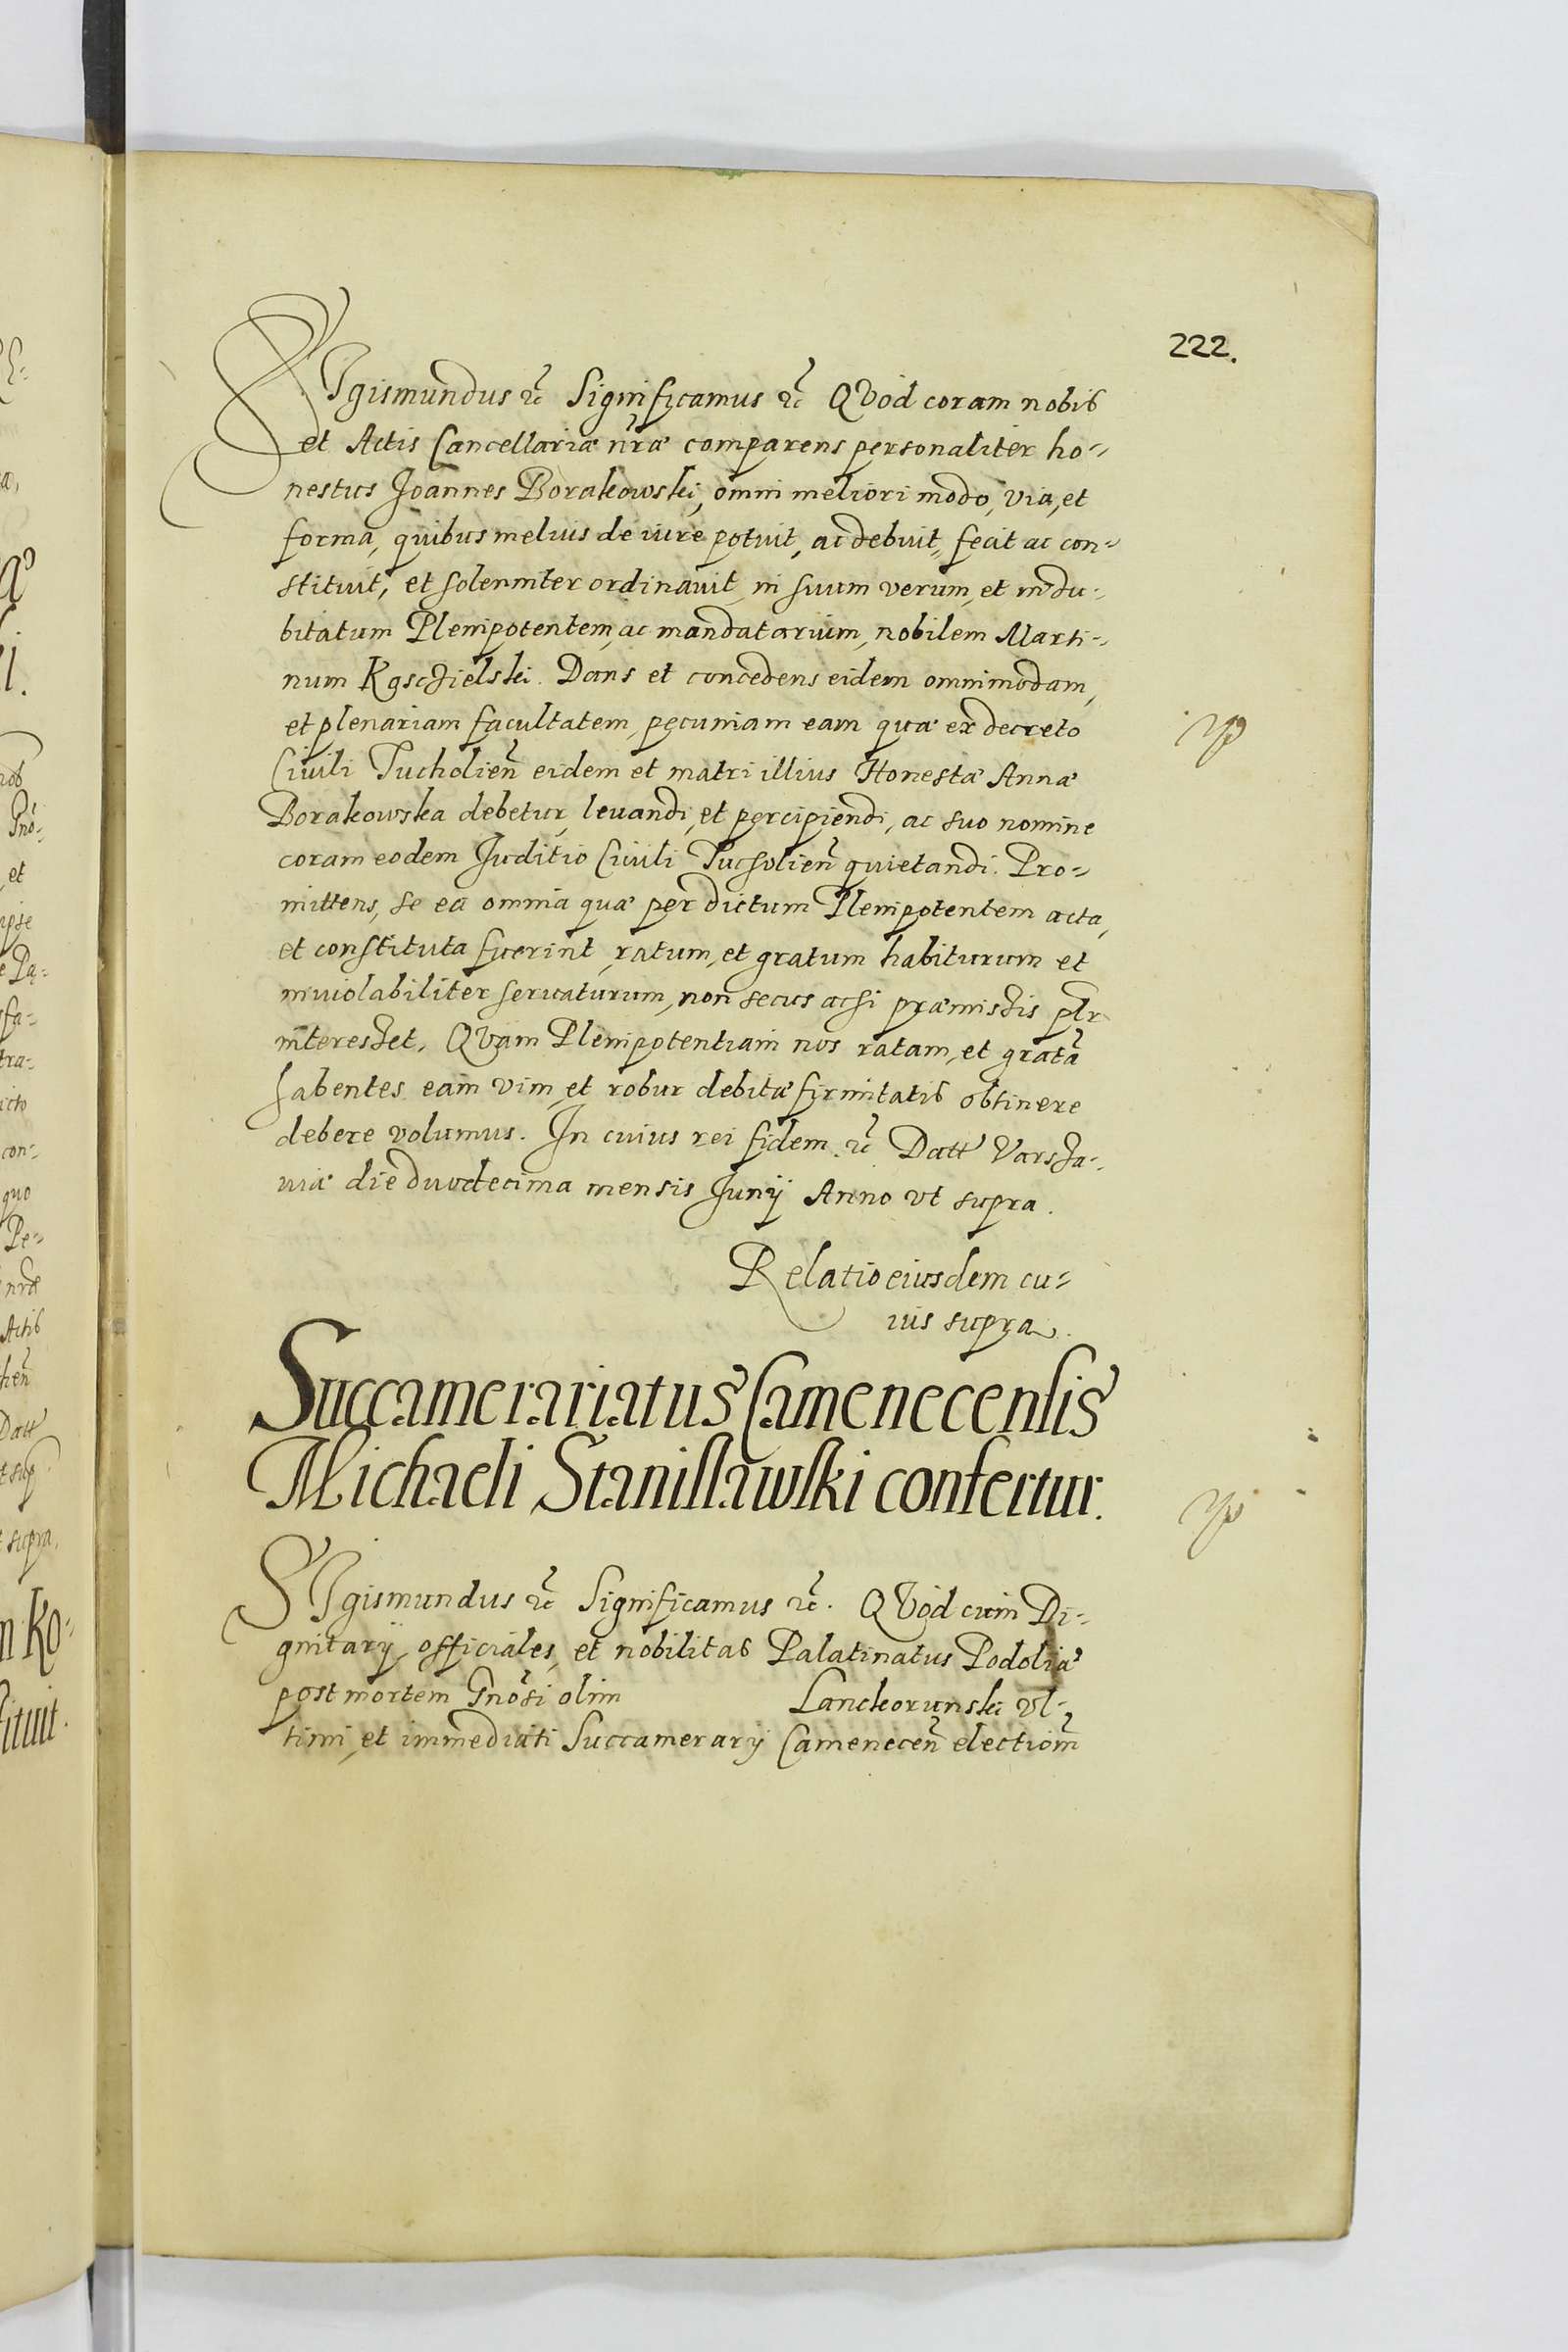 222.
SIgismundus &c̃ Significamus &c̃ QVod coram nobis
et Actis Cancellariæ nr̃æ comparens personaliter ho-
nestus Joannes Borakowski, omni meliori modo, via, et
forma, quibus melius de iure potuit, ac debuit, fecit ac con-
stituit, et solenniter ordinauit, in suum verum, et indu-
bitatum Plenipotentem, ac mandatarium, nobilem Marti-
num Kąsczielski. Dans et concedens eidem omnimodam,
et plenariam facultatem, pecuniam eam quæ ex decreto
Ciuili Tucholien̄ eidem et matri illius Honestæ Annæ
Borakowska debetur, leuandi, et percipiendi, ac suo nomine
coram eodem Juditio Ciuili Tucholien̄ quietandi. Pro-
mittens, se ea omnia quæ per dictum Plenipotentem acta,
et constituta fuerint, ratum, et gratum habiturum et
inuiolabiliter seruaturum, non secus acsi præmissis plr
interesset. QVam Plenipotentiam nos ratam, et gratã
habentes eam vim, et robur debitæ firmitatis obtinere
debere volumus. In cuius rei fidem &c̃ Datt Varsza-
uiæ die duodecima mensis Junij Anno vt supra.
Relatio eiusdem cu-
ius supra.
Succamerariatus Camenecensis
Michaeli Stanislawski confertur.
SIgismundus &c̃ Significamus &c̃. QVod cum Di-
gnitarij, officiales, et nobilitas Palatinatus Podoliæ
post mortem Gnõsi olim Lanckorunski vl-
timi, et immediati Succamerarij Camenecen̄ electiom̃